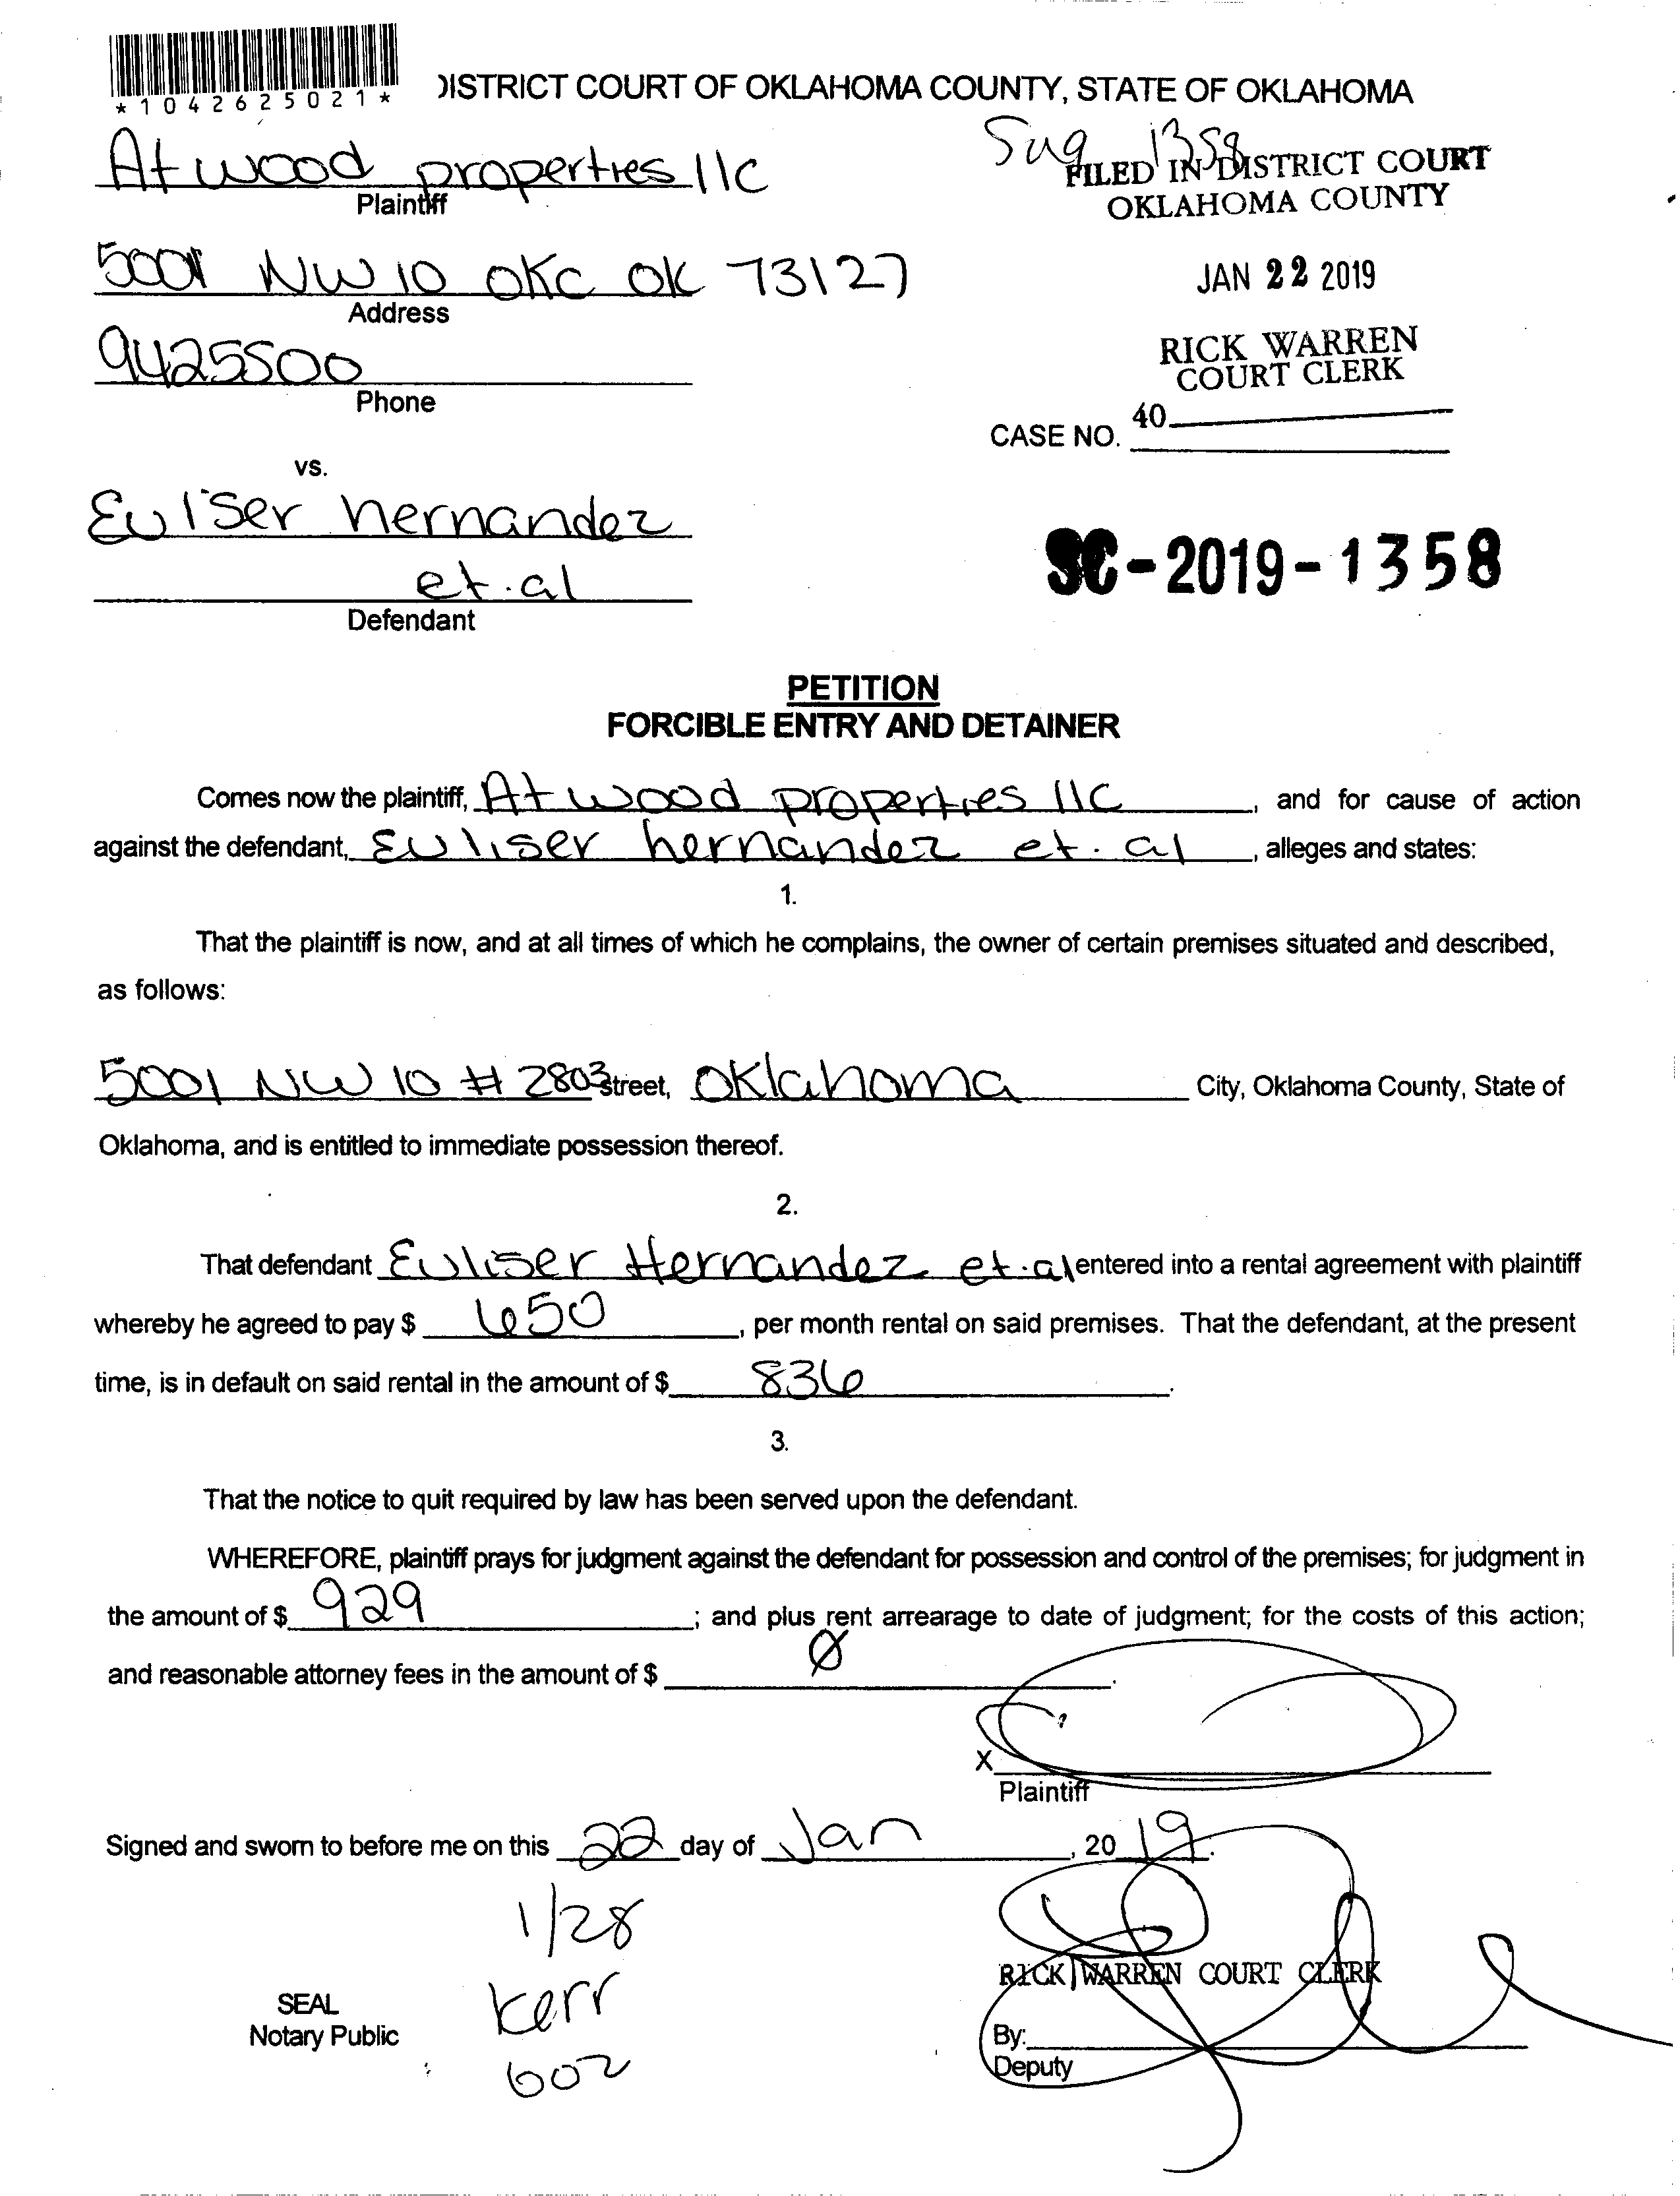 *1042625021*
DISTRICT COURT OF OKLAHOMA COUNTY, STATE OF OKLAHOMA
Atwood properties llc
Plaintiff
1358
FILED IN DISTRICT COURT
OKLAHOMA COUNTY
5001 NW 10 OKC OK 73127
Address
JAN 22 2019
9425500
Phone
RICK WARREN
COURT CLERK
40
CASE NO.
vs.
Euliser hernandez
et.al
Defendant
SC-2019-1358
PETITION
FORCIBLE ENTRY AND DETAINER
Comes now the plaintiff, Atwood properties llc, and for cause of action
against the defendant, Euliser hernandez et.al, alleges and states:
1.
That the plaintiff is now, and at all times of which he complains, the owner of certain premises situated and described,
as follows:
5001 NW 10 # 2803 street, Oklahoma City, Oklahoma County, State of
Oklahoma, and is entitled to immediate possession thereof.
2.
That defendant Euliser Hernandez et.al entered into a rental agreement with plaintiff
whereby he agreed to pay $ 650, per month rental on said premises. That the defendant, at the present
time, is in default on said rental in the amount of $ 836.
3.
That the notice to quit required by law has been served upon the defendant.
WHEREFORE, plaintiff prays for judgment against the defendant for possession and control of the premises; for judgment in
the amount of $ 929; and plus rent arrearage to date of judgment; for the costs of this action;
and reasonable attorney fees in the amount of $ Ø.
X
Plaintiff
Signed and sworn to before me on this 22 day of Jan, 2019.
1/28
RICK WARREN COURT CLERK
SEAL
Notary Public
Kerr
602
By:
Deputy